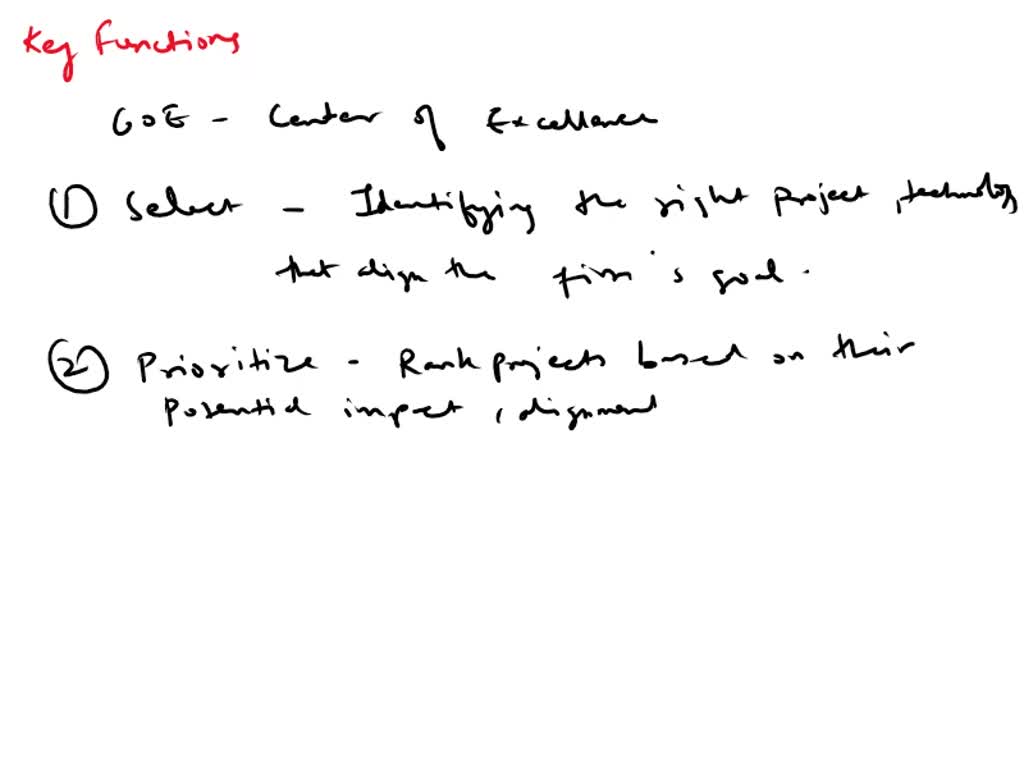 Key Functions
COE - Center of Excellence
① Select - Identifying the right project, technology
that align the firm's goal.
② Prioritize - Rank projects based on their
Potential impact, alignment